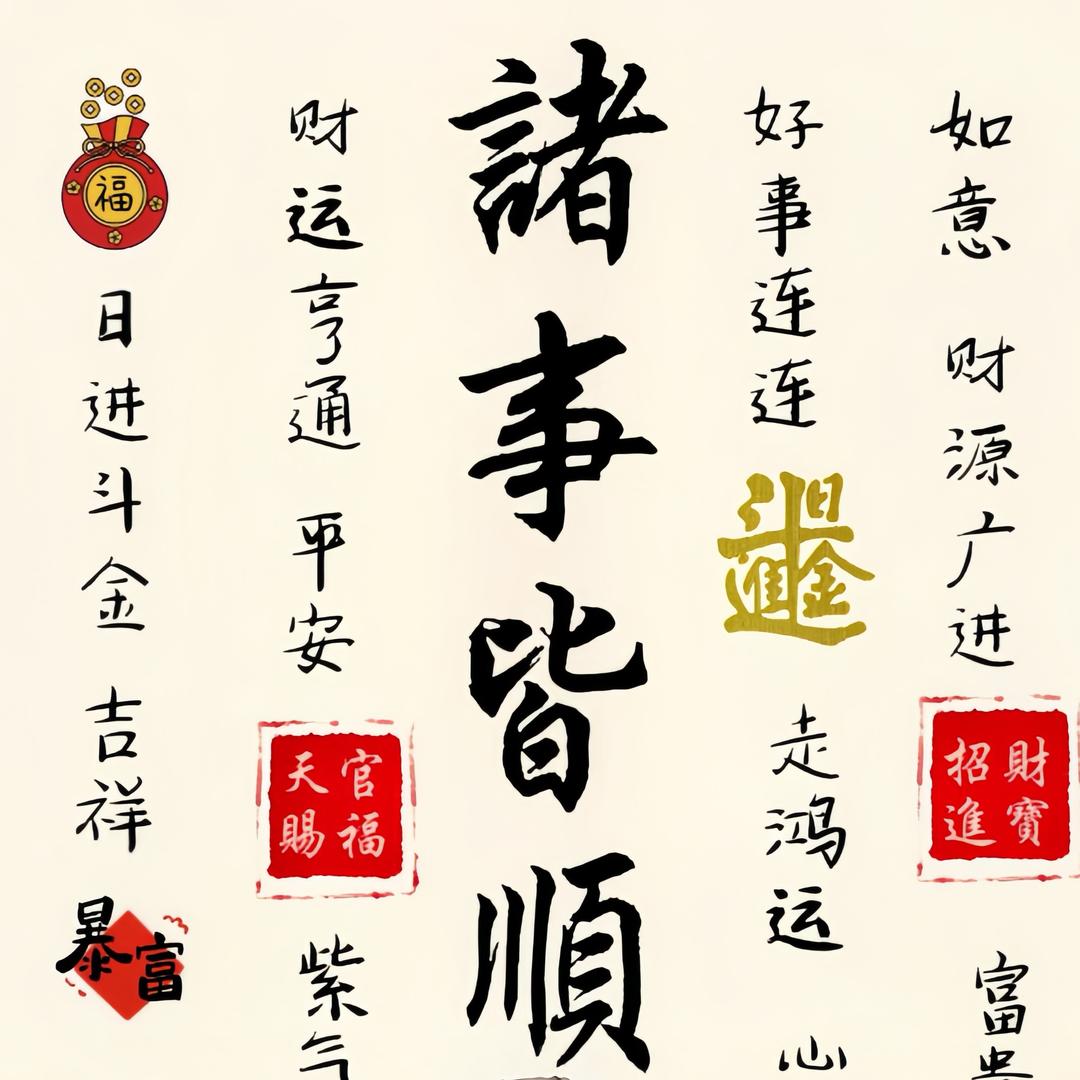 如意
财源广进
招財
進寶
富
好事连连
日進斗金
走鸿运
心
諸事皆順
财运亨通
平安
天官
賜福
紫气
福
日进斗金
吉祥
暴富